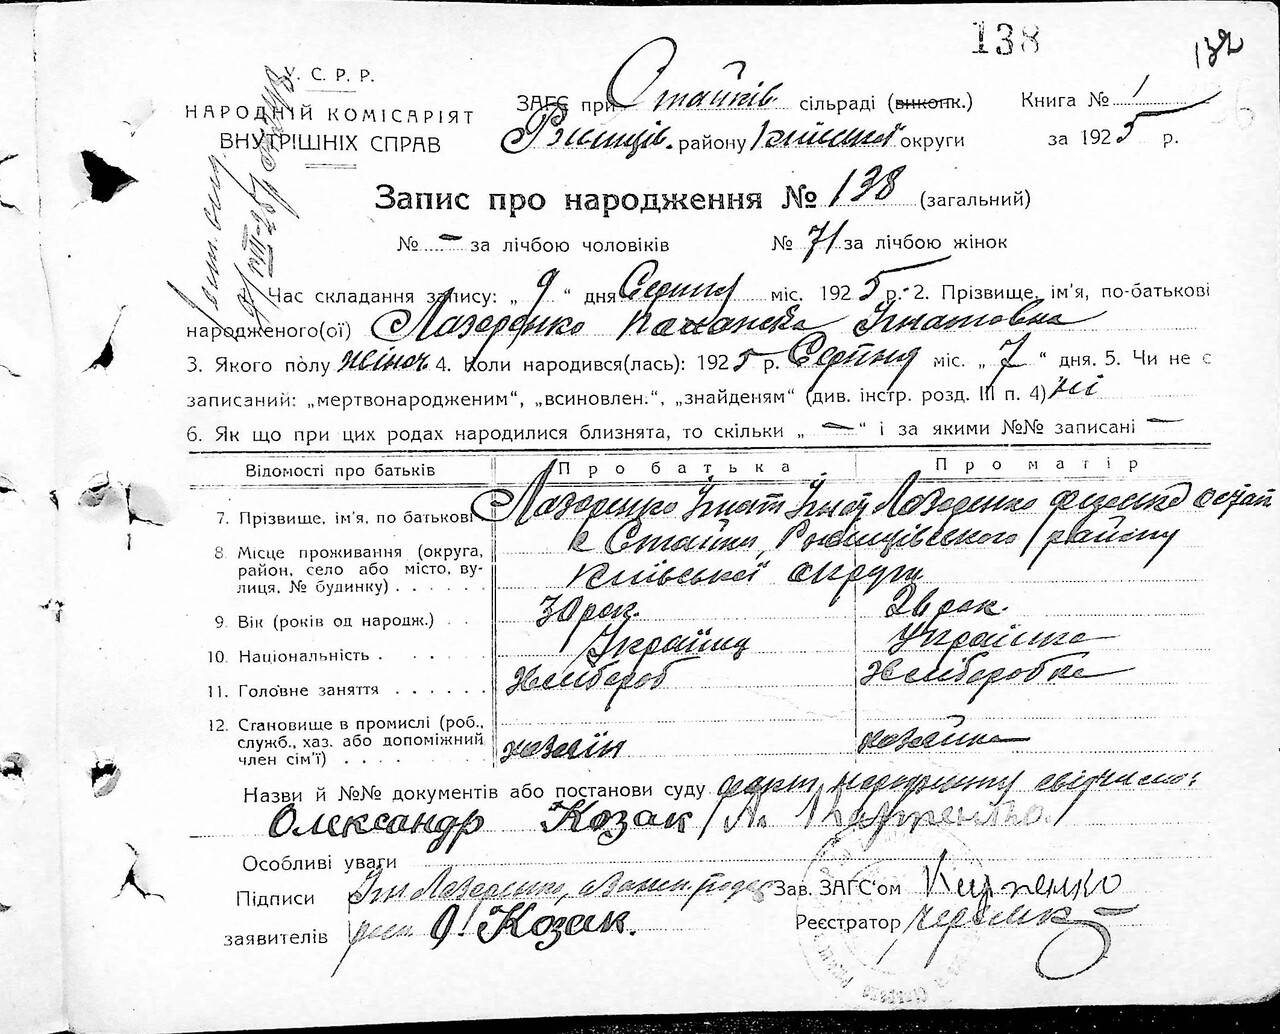 138
132
У. С. Р. Р.
НАРОДНІЙ КОМІСАРІЯТ
ВНУТРІШНІХ СПРАВ
ЗАГС при Стайків. сільраді (виконк.) Книга № 1
Ржищів. району Київської округи за 1925 р.
Запис про народження № 138 (загальний)
№ — за лічбою чоловіків № 71 за лічбою жінок
Час складання запису: „ 9 “ дня Серпня міс. 1925 р. 2. Прізвище, ім'я, по-батькові
народженого(ої) Лазаренко Ігнатовна
3. Якого полу жіноч 4. Коли народився(лась): 1925 р. Серпня міс. „ 7 “ дня. 5. Чи не є
записаний: „мертвонародженим“, „всиновлен.“, „знайденям“ (див. інстр. розд. III п. 4) ні
6. Як що при цих родах народилися близнята, то скільки „ — “ і за якими №№ записані —
Відомості про батьків Про батька Про матір
7. Прізвище, ім'я, по батькові Лазаренко Ігнат Ігнат Лазаренко
8. Місце проживання (округа, район, село або місто, вулиця, № будинку) с Стайки, Ржищівського району
Київської округи
9. Вік (років од народж.) 30 рок. 26 рок.
10. Національність Україн Українка
11. Головне заняття Хлібороб Хліборобка
12. Становище в промислі (роб., служб., хаз. або допоміжний член сім'ї) хазяїн хазяйка
Назви й №№ документів або постанови суду факт народження
Олександр Козак
Особливі уваги
Підписи Лазаренко, Зав. ЗАГС'ом
заявителів О. Козак. Реєстратор